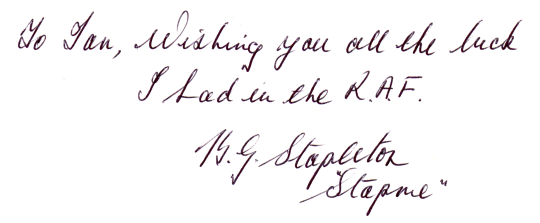 To Ian, Wishing you all the luck
I had in the R.A.F.
B.G. Stapleton
"Stapme"